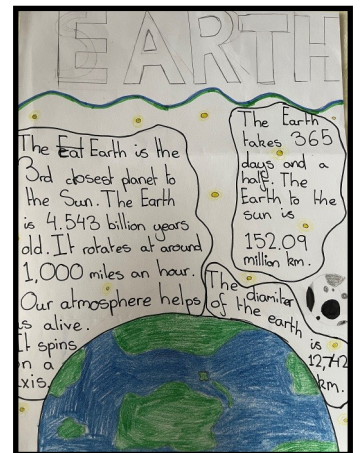 EARTH
The Eat Earth is the
3rd closest planet to
the Sun. The Earth
is 4.543 billion years
old. It rotates at around
1,000 miles an hour.
Our atmosphere helps
us alive.
It spins
on a
axis.
The Earth
takes 365
days and a
half. The
Earth to the
sun is
152.09
million km.
The diamiter
of the earth
is
12,742
km.